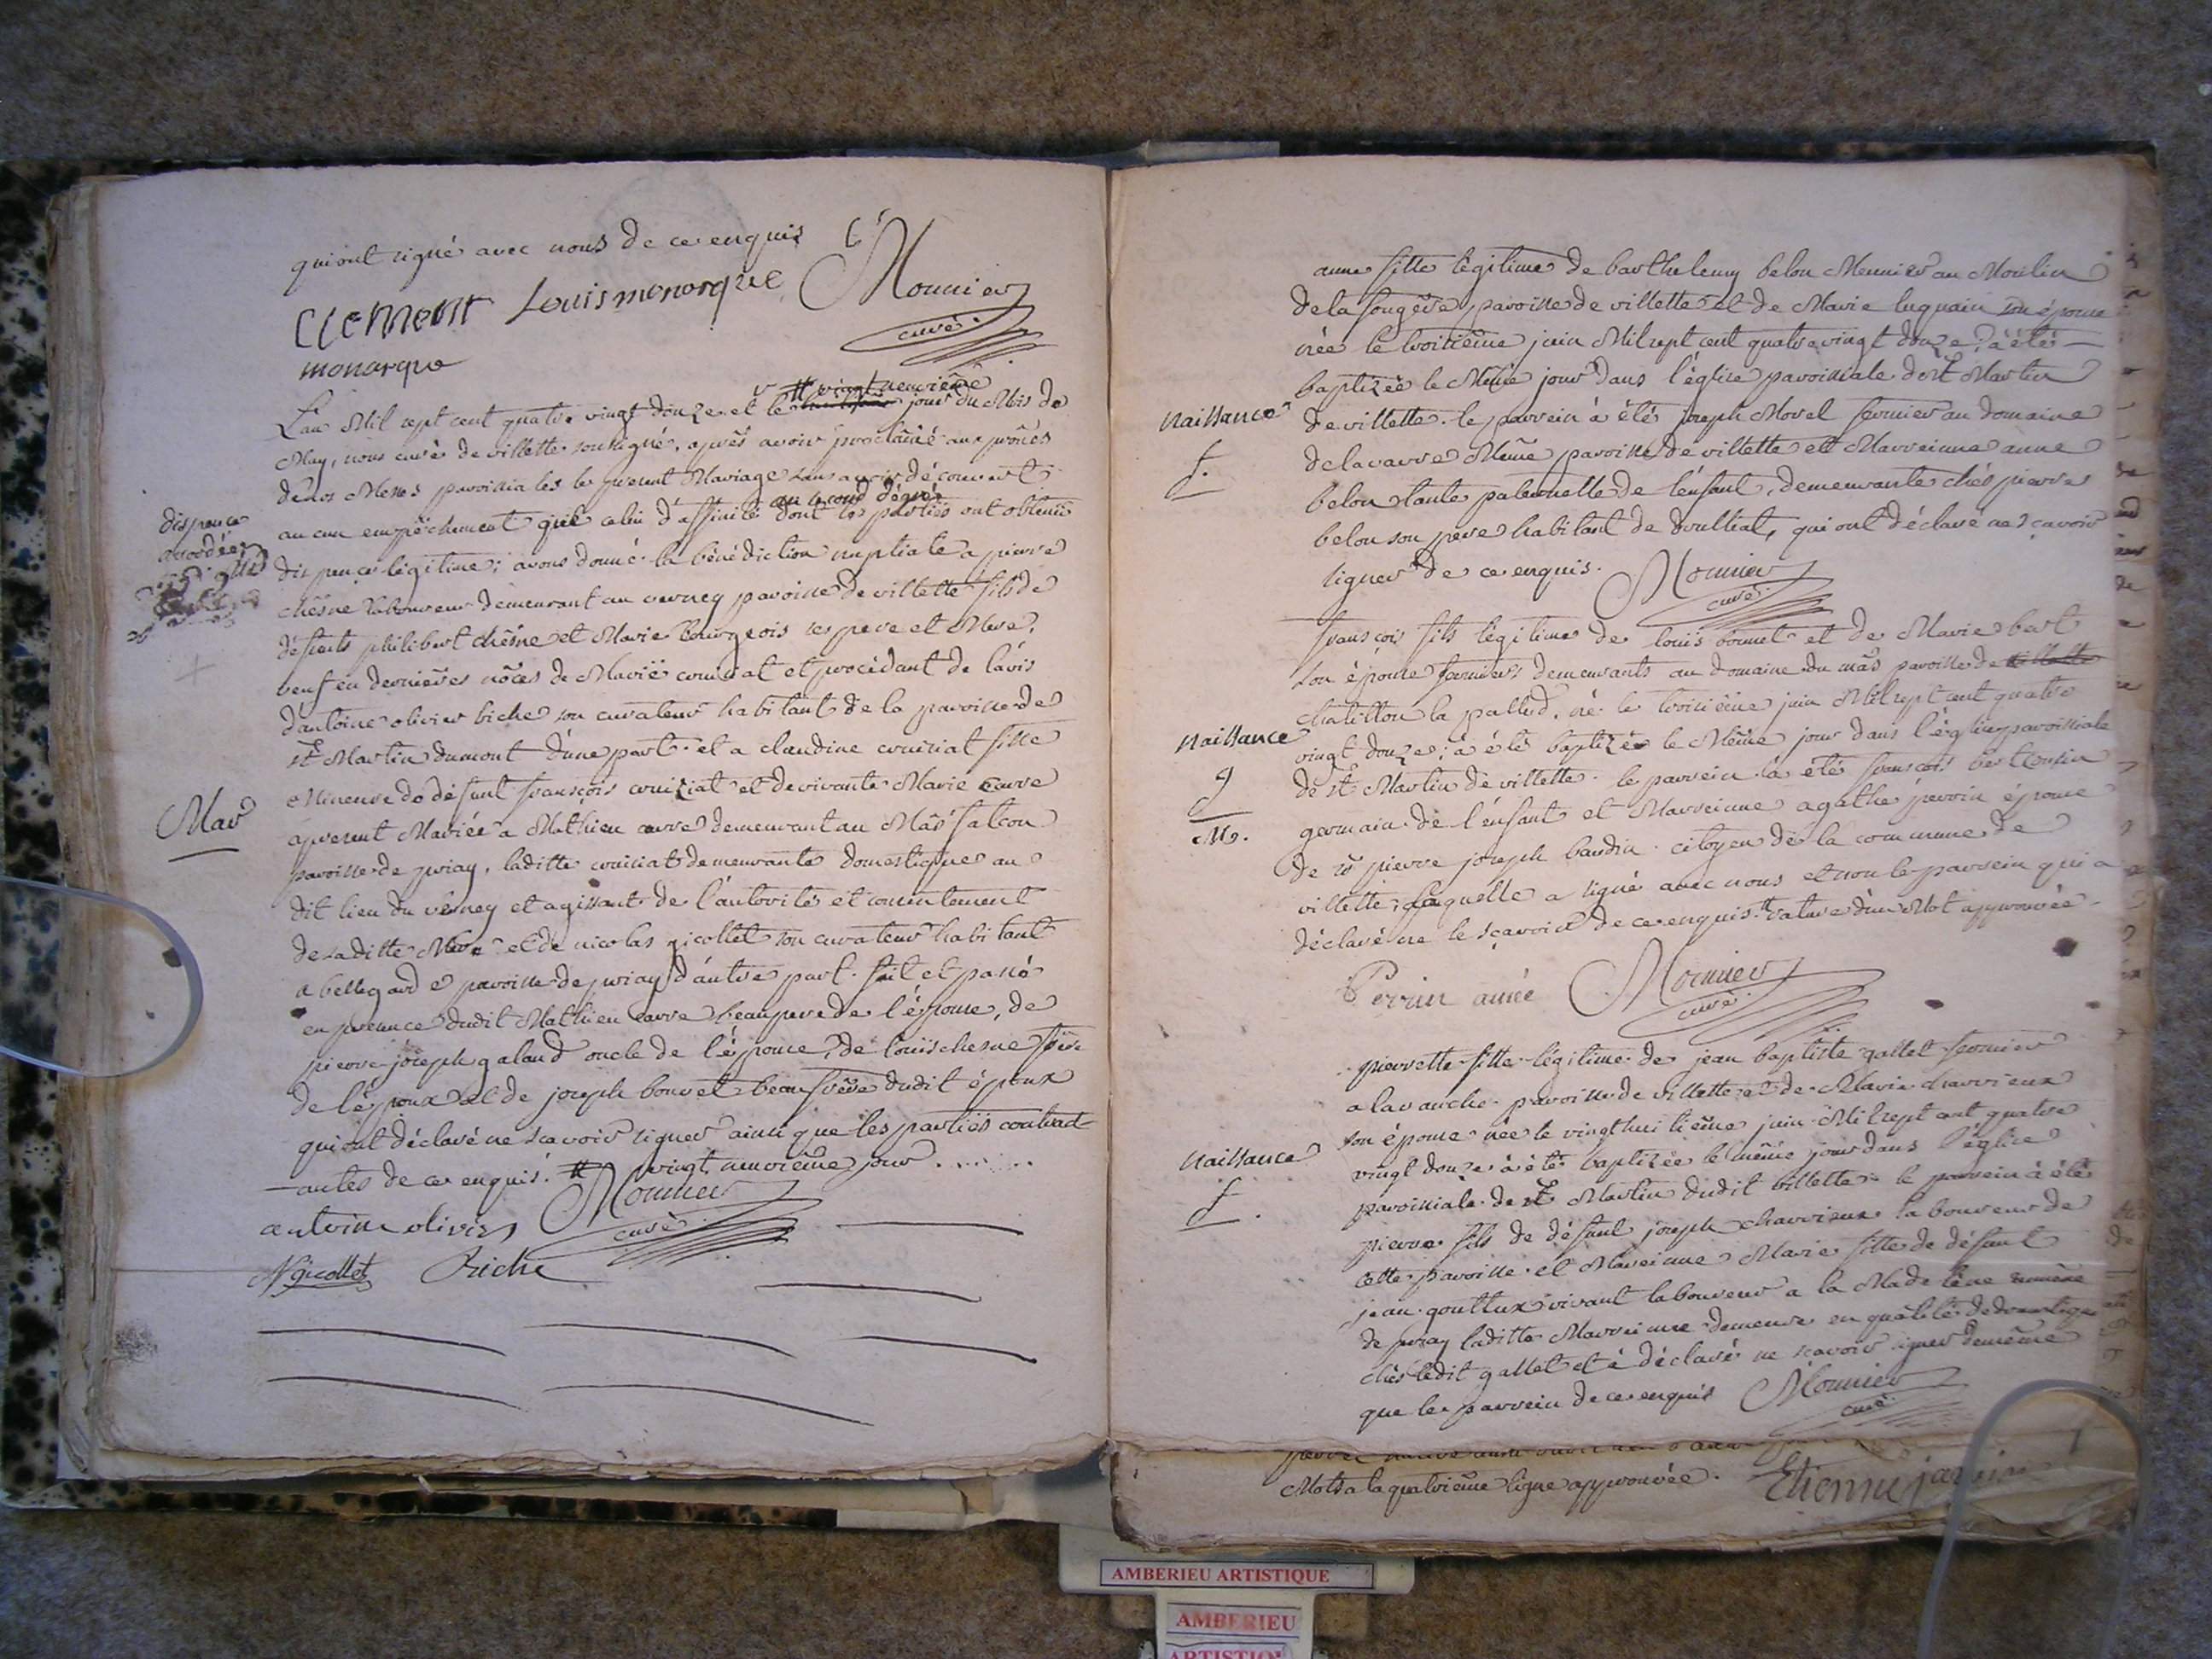 qui ont signé avec nous de ce enquis
Clement Louis monarque Monnier
curé
monarque
vingt neuvième
L'an Mil sept cent quatre vingt douze et le jour du Mois de
May, nous curé de villette soussigné, après avoir proclamé aux prônes
de nos Messes paroissiales le present Mariage sans avoir découvert
au second dégré
aucun empêchement que celui d'affinité dont les parties ont obtenu
dispence légitime; avons donné la bénédiction nuptiale a pierre
chêsne laboureur demeurant au verney paroisse de villette fils de
défunts philibert chêsne et Marie Bourgeois ses pere et Mere,
veuf en dernières nôces de Marie et procédant de l'avis
d'antoine olivier biche son curateur habitant de la paroisse de
st Martin dumont d'une part. et a claudine fille
Mineure de défunt françois et de vivante Marie cavre
apresent Mariée a Mathieu cavre demeurant au Mas falcon
paroisse de priay, laditte demeurante domestique au
dit lieu du verney et agissant de l'autorité et consentement
de saditte Mere et de nicolas gicollet son curateur habitant
a bellegarde paroisse de priay d'autre part. fait et passé
en presence dudit Mathieu cavre beaupere de l'épouse, de
pierre joseph galand oncle de l'épouse, de louis chesne frère
de l'époux et de joseph bonvet beaufrère dudit époux
qui ont déclaré ne scavoir signer ainsi que les parties contract-
antes de ce enquis. # vingt neuvième jour
antoine olivier Monnier
curé
N gicollet Biche
dispence
accordée
Mar
anne fille légitime de barthelemy belon Meunier au Moulin
de la fougère paroisse de villette et de Marie luquain son épouse
née le troisième juin Mil sept cent quatre vingt douze, à été
baptizée le Même jour dans l'église paroissiale de st Martin
de villette. le parrein à été joseph Morel fermier au domaine
de la varre Même paroisse de villette et Marreinne anne
belon tante paternelle de l'enfant, demeurante chés pierre
belon son pere habitant de druillat, qui ont déclaré ne scavoir
signer de ce enquis. Monnier
curé
naissance
f.
françois fils légitime de louis bonnet et de Marie bert
son épouse fermiers demeurants au domaine du mas paroisse de villette
chatillon la pallud. né le troisième juin Mil sept cent quatre
vingt douze; à été baptizé le Même jour dans l'église paroissiale
de st Martin de villette. le parrein à été françois bert cousin
germain de l'enfant et Marreinne agathe perrin épouse
de sr pierre joseph baudin citoyen de la commune de
villette, laquelle a signé avec nous et non le parrein qui a
déclaré ne le sçavoir de ce enquis. rature d'un Mot approuvée.
Perrin aimée Monnier
curé
naissance
g
M.
pierrette fille légitime de jean baptiste gallet fermier
a lavanche paroisse de villette et de Marie charvieux
son épouse née le vingt huitième juin Mil sept cent quatre
vingt douze à été baptizée le même jour dans l'église
paroissiale de st Martin dudit villette. le parrein à été
pierre fils de défunt joseph charvieux laboureur de
cette paroisse et Mareinne Marie fille de défunt
jean goutteux vivant laboureur a la Madelène
de priay laditte Marreinne demeure en qualité de domestique
chés ledit gallet et à déclaré ne scavoir signer de même
que le parrein de ce enquis Monnier
curé
naissance
f.
Mots a la quatrième ligne approuvée.
Etienne
AMBERIEU ARTISTIQUE
AMBERIEU
ARTISTIQUE